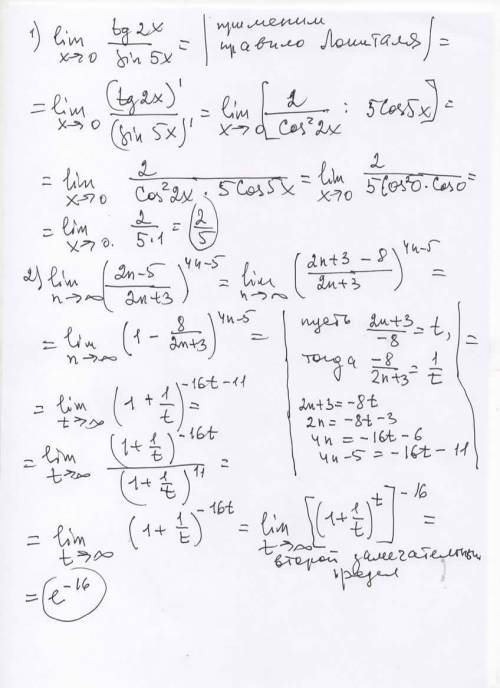 1) lim x→0 tg2x / sin 5x = | применим правило Лопиталя | =
= lim x→0 (tg2x)' / (sin 5x)' = lim x→0 [2 / cos²2x : 5cos5x] =
= lim x→0 2 / cos²2x · 5cos5x = lim x→0 2 / 5cos²0 · cos0 =
= lim x→0. 2 / 5·1 = 2/5
2) lim n→∞ (2n-5 / 2n+3)^4n-5 = lim n→∞ (2n+3-8 / 2n+3)^4n-5 =
= lim n→∞ (1 - 8 / 2n+3)^4n-5 =
| пусть 2n+3 / -8 = t,
тогда -8 / 2n+3 = 1/t
2n+3 = -8t
2n = -8t-3
4n = -16t-6
4n-5 = -16t-11 | =
= lim t→∞ (1 + 1/t)^-16t-11 =
= lim t→∞ (1 + 1/t)^-16t / (1 + 1/t)^11 =
= lim t→∞ (1 + 1/t)^-16t = lim t→∞ [(1 + 1/t)^t]^-16 =
второй замечательный
предел
= e^-16